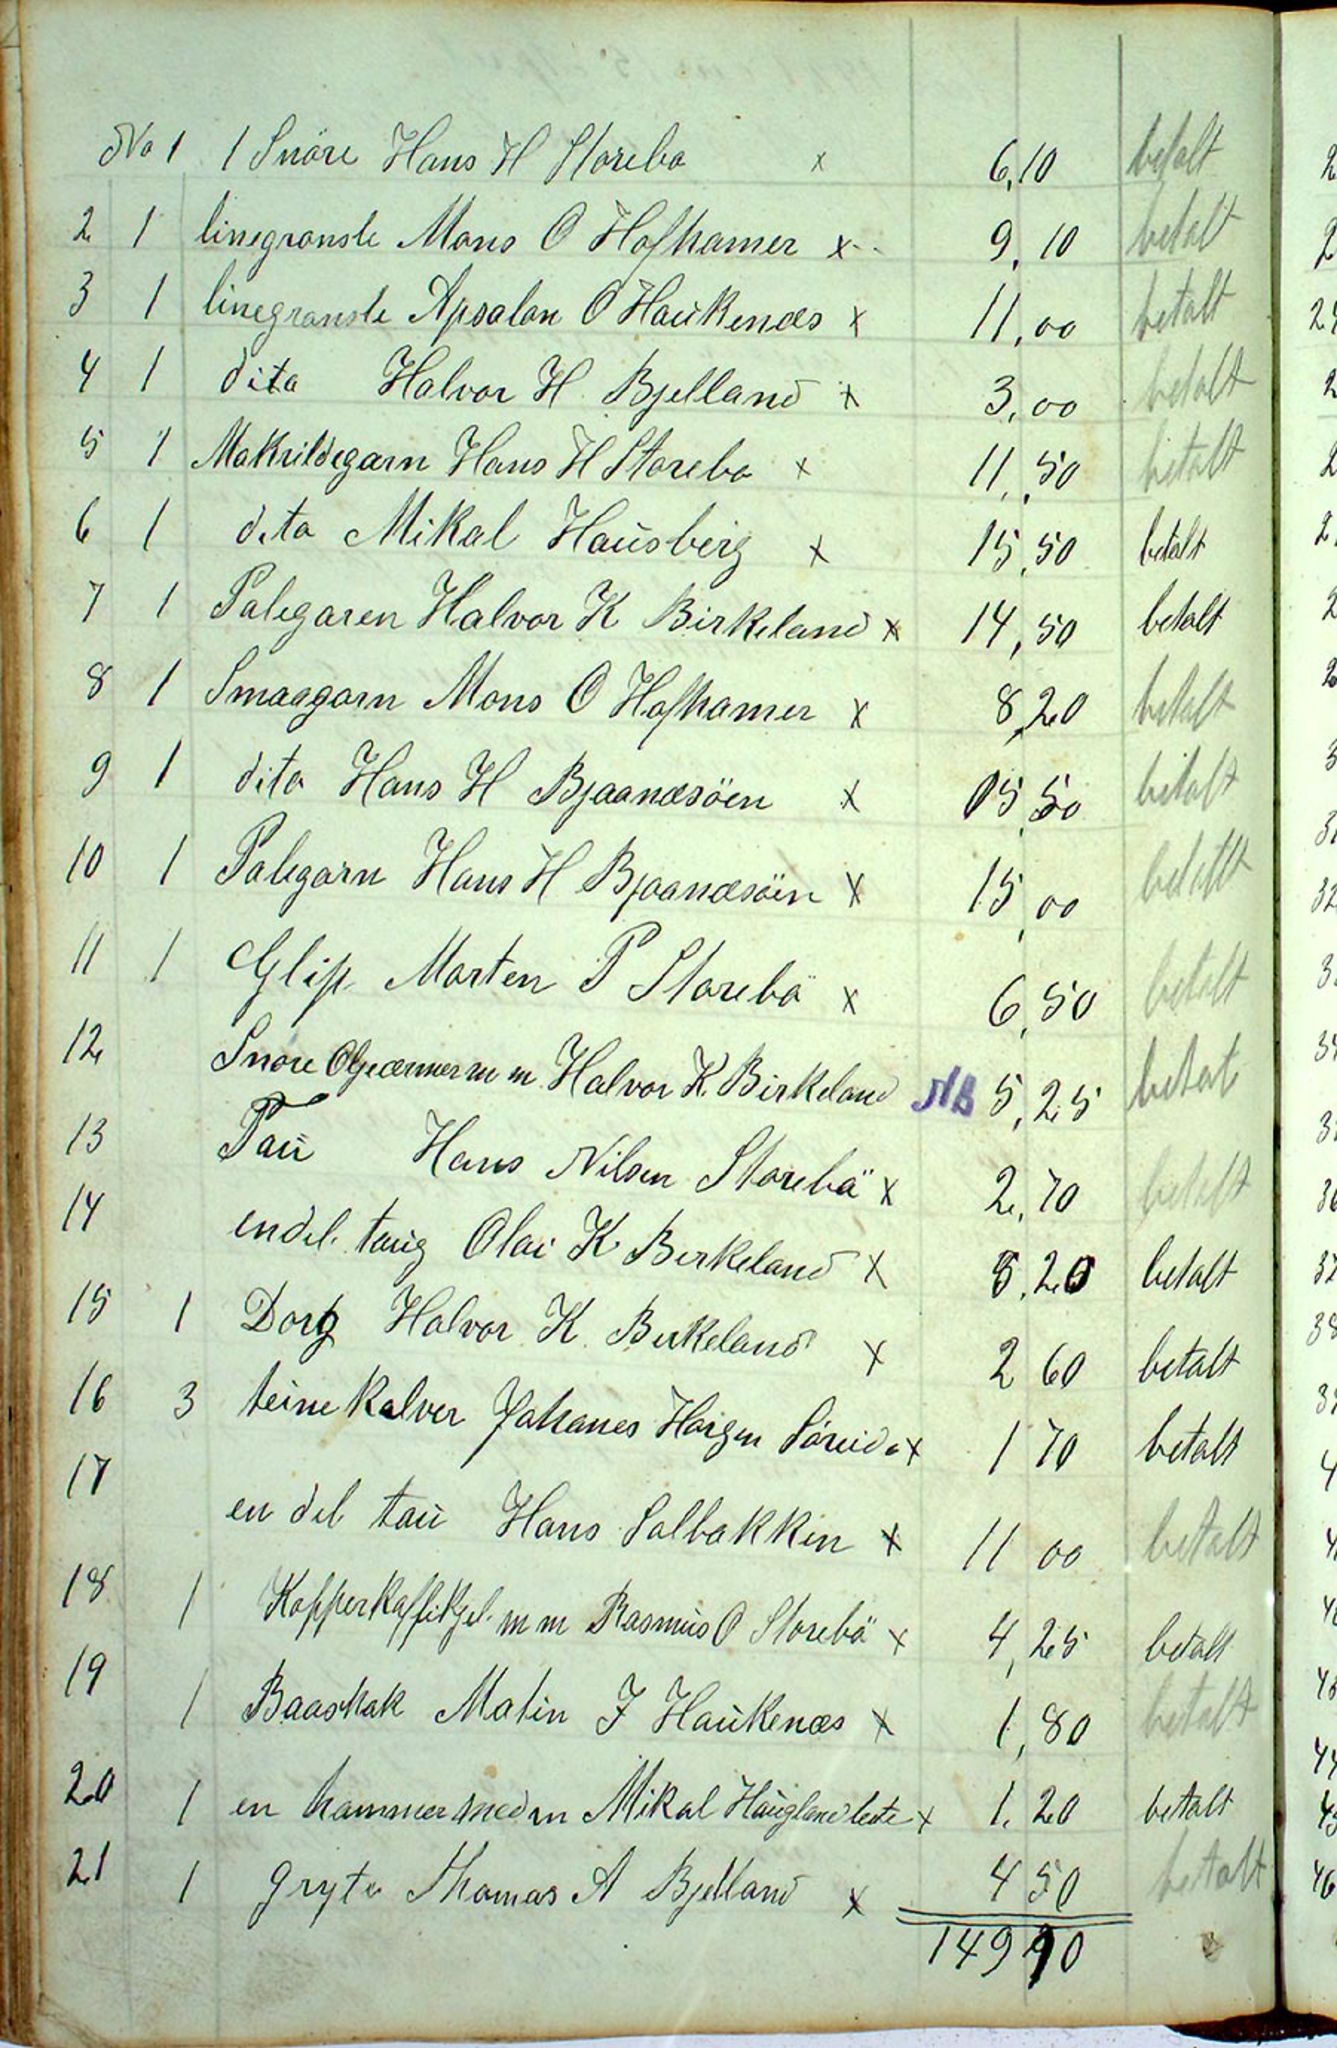 No 1 1 Snöre Hans H Storebø x 6,10 betalt
2 1 linegranste Mons O Hofhamer x 9,10 betalt
3 1 linegranste Apsalon O Haukenæs x 11,00 betalt
4 1 dita Halvor H Bjelland x 3,00 betalt
5 1 Makrildegarn Hans H Storebo x 11,50 betalt
6 1 dito Mikal Hausberg x 15,50 betalt
7 1 Palegaren Halvor K Birkeland x 14,50 betalt
8 1 Smaagarn Mons O Hofhamer x 8,20 betalt
9 1 dito Hans H Bjaanæsöen x 05,50 betalt
10 1 Palegarn Hans H Bjaanæsöen x 15,00 betallt
11 1 Glip Morten P Storebö x 6,50 betalt
12 Snöre m m Halvor K. Birkeland NB 5,25 betalt
13 Tau Hans Nilsen Storebö x 2,70 betalt
14 endel taug Olai K Birkeland x 5,20 betalt
15 1 Dorg Halvor K. Birkeland x 2 60 betalt
16 3 teine kalver Johanes Söreide x 1 70 betalt
17 en del tau Hans Solbakken x 11 00 betalt
18 1 Kopperkaffikjel m m Rasmus O Storebö x 4,25 betalt
19 1 Baashak Malin J Haukenæs x 1,80 betalt
20 1 en hammer med m Mikal x 1,20 betalt
21 1 gryte Thomas A Bjelland x 4 50 betalt
149 90